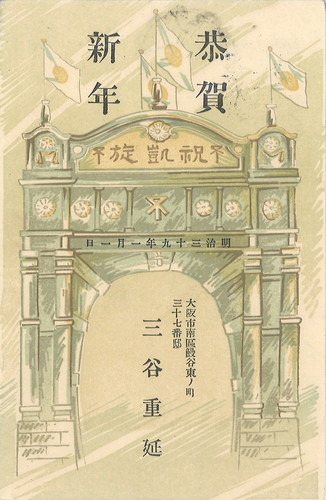 恭賀
新年
祝凱旋
明治三十九年一月一日
大阪市南區鰻谷東ノ町
三十七番邸
三谷重延